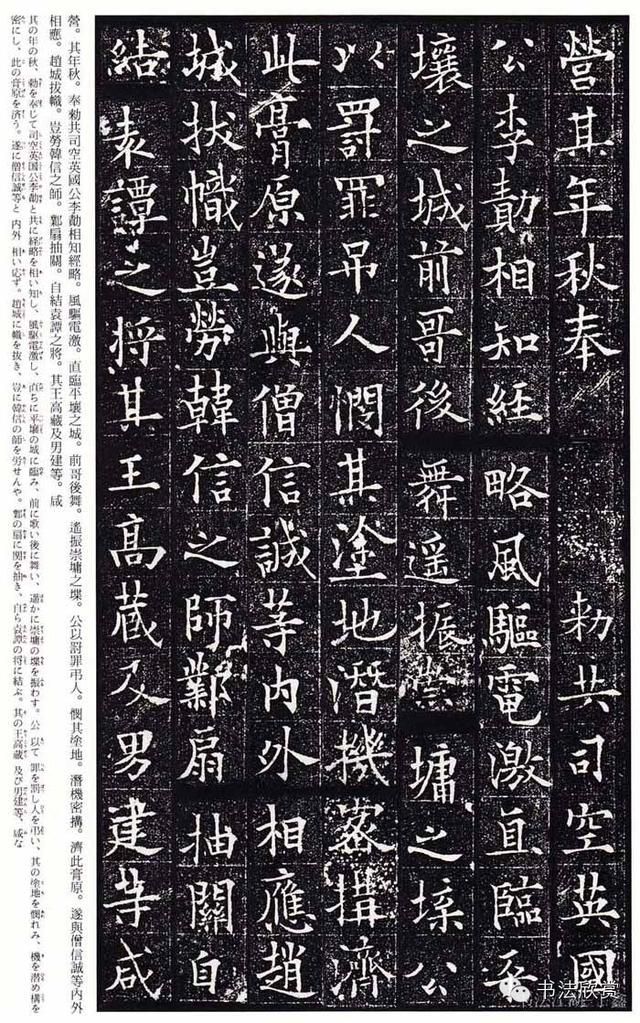 營其年秋奉 勅共司空英國
公李勣相知経略風驅電激直臨平
壤之城前哥後舞遥振崇墉之堞公
以罰罪吊人憫其塗地潛機密搆濟
此膏原遂與僧信誠等内外相應趙
城拔幟豈勞韓信之師鄴扇抽關自
結袁譚之將其王高蔵及男建等咸
營。其年秋。奉勅共司空英國公李勣相知經略。風驅電激。直臨平壤之城。前哥後舞。遙振崇墉之堞。公以罰罪弔人。憫其塗地。潛機密搆。濟此膏原。遂與僧信誠等內外
相應。趙城拔幟。豈勞韓信之師。鄴扇抽關。自結袁譚之將。其王高藏及男建等。咸
其の年の秋、勅を奉じて司空英国公李勣と共に経略を相い知し、風驅電激し、直ちに平壤の城に臨み、前に歌い後に舞い、遥かに崇墉の堞を振わす。公 以て 罪を罰し人を弔い、其の塗地を憫れみ、機を潜め構を
密にし、此の膏原を済う。遂に僧信誠等と 内外 相い応ず。趙城に幟を抜き、豈に韓信の師を労せんや。鄴の扇に関を抽き、自ら袁譚の将に結ぶ。其の王高藏 及び男建等、咸な
书法欣赏